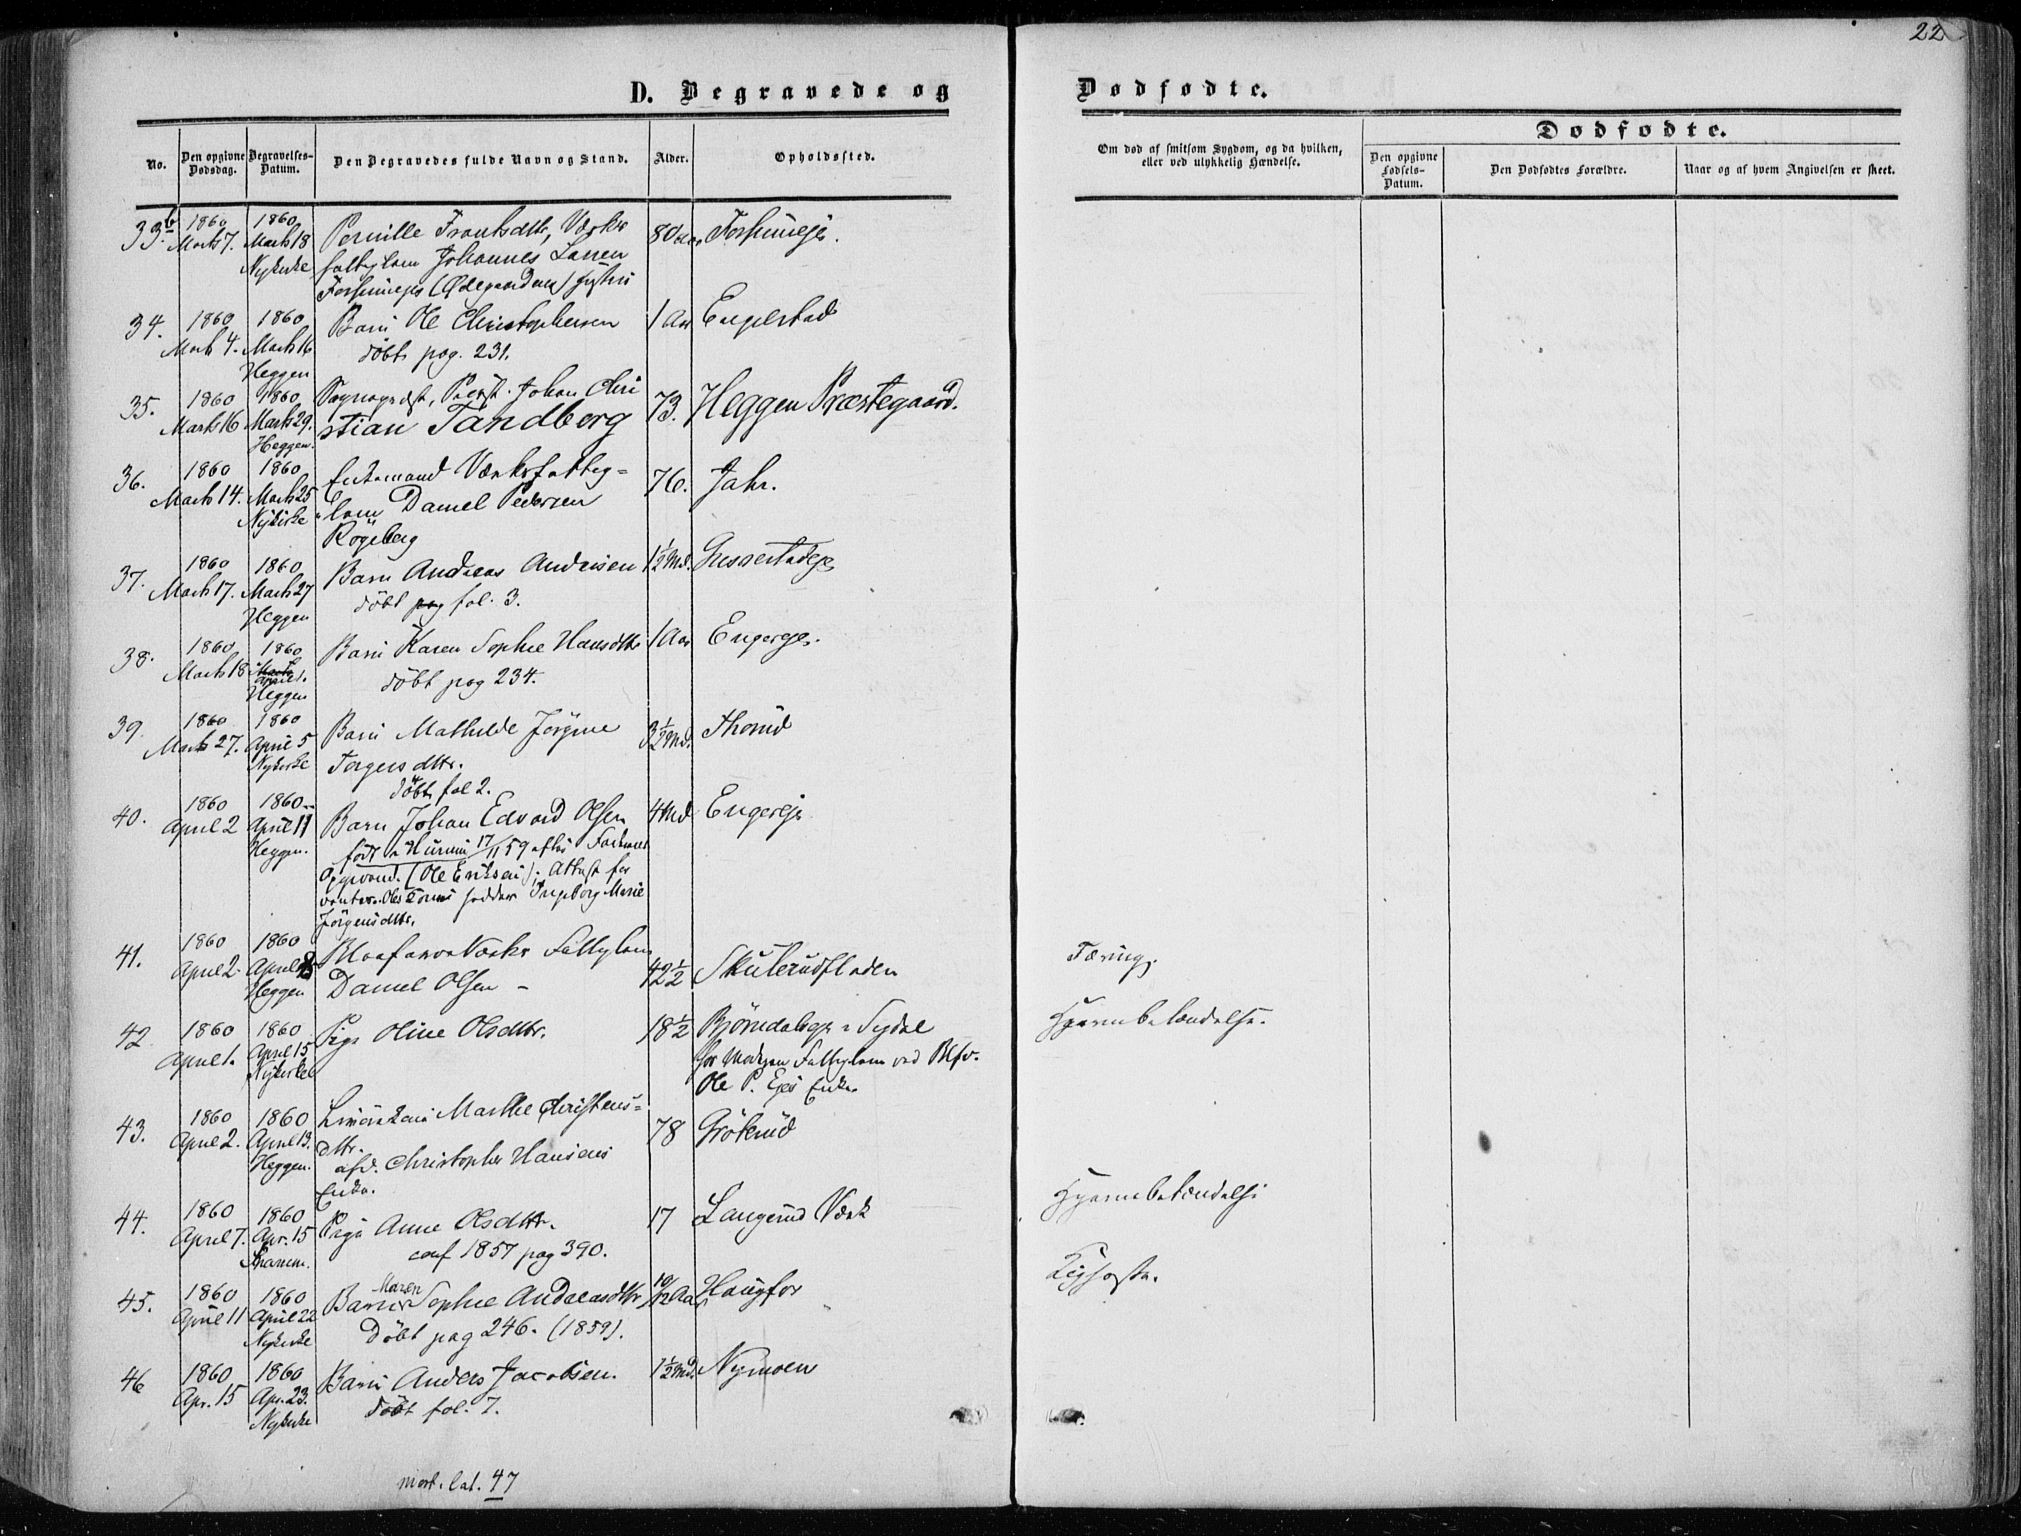 22
D. Begravede og
Dødfødte.
No.
Den opgivne Dødsdag.
Begravelses-Datum.
Den Begravedes fulde Navn og Stand.
Alder.
Opholdssted.
Om død af smitsom Sygdom, og da hvilken,
eller ved ulykkelig Hændelse.
Dødfødte.
Den opgivne Fødsels-Datum.
Den Dødfødtes Forældre.
Naar og af hvem Angivelsen er skeet.
33b 1860 1860 Pernille Frantsdtr, Værks
Marts 7. Marts 18 80 Aar
Nykirke Johannes Larsen
34. 1860 1860 Barn Ole Christophersen 1 Aar Engelstad
Marts 4. Marts 16 döbt pag. 231.
Heggen
35. 1860 1860 Sognepræst, Provst Johan Chri
Marts 16 Marts 29. stian Tandberg 73. Heggen Præstegaard.
Heggen.
36. 1860 1860 Enkemand Værksfattig=
Marts 14. Marts 25 lem Daniel Pedersen 76. Jahr.
Nykirke Rögeberg
37. 1860 1860 Barn Andreas Andersen 1½ Md.
Marts 17. Marts 27 döbt pag fol. 3.
Heggen
38. 1860 1860 Barn Karen Sophie Hansdtr 1 Aar Engerejr.
Marts 18 Marts April 1. döbt pag 234.
Heggen
39. 1860 1860 Barn Mathilde Jörgine 3½ Md.
Marts 27. April 5 Torgersdtr.
Nykirke döbt fol 2.
40. 1860 1860 Barn Johan Edvard Olsen 4 Md Engerejr
April 2 April 11 född 17/11 59
Heggen. Opgivend. (Ole Eriksen). Attest for
Ingeborg Marie
Jörgensdtr.
41. 1860 1860 Blaafarve Værks Fattiglem
April 2. April Daniel Olsen – 42½ Skuterudfladen Tæring.
Heggen
42 1860 1860 Pige Oline Olsdtr. 18½ Björndalsejr i Sysdal Hjernebetændelse.
April 1. April 15 Fattiglem ved Blfv.
Nykirke Ole P. Ejes Enke
43. 1860 1860 Marthe Christens=
April 2. April 13. dtr. 78
Heggen. afd. Christopher Hansens
Enke.
44. 1860 1860 Pige Anne Olsdtr. 17 Langerud Værk Hjernebetændelse
April 7. Apr. 15 conf 1857 pag 390.
Snarum.
45. 1860 1860 Barn Maren Sophie Andreasdtr 10/12 Aar Haugfos Kighoste.
April 11 April 22 Döbt pag 246. (1859).
Nykirke
46 1860 1860 Barn Anders Jacobsen. 1½ Md. Nymoen
Apr. 15 Apr. 23. döbt fol. 7.
Nykirke
mort. lat. 47